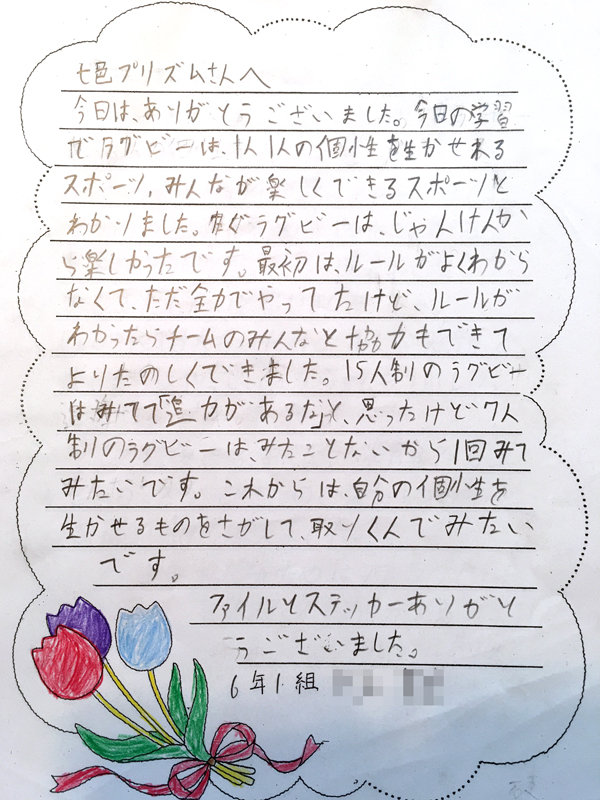 七邑プリズムさんへ
今日は、ありがとうございました。今日の学習
でラグビーは、1人1人の個性を生かせれる
スポーツ、みんなが楽しくできるスポーツと
わかりました。ラグビーは、じゃんけんか
ら楽しかったです。最初は、ルールがよくわから
なくて、ただ全力でやってたけど、ルールが
わかったらチームのみんなと協力もできて
よりたのしくできました。15人制のラグビー
はみてて「迫力があるな」と、思ったけど7人
制のラグビーは、みたことないから1回みて
みたいです。これからは、自分の個性を
生かせるものをさがして、取りくんでみたい
です。
ファイルとステッカーありがと
うございました。
6年1組